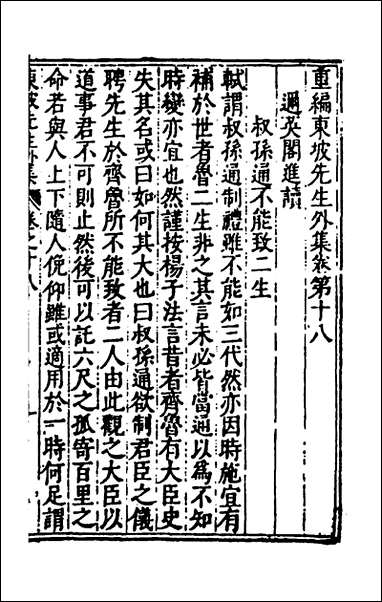 重編東坡先生外集卷第十八
邇英閣進讀
叔孫通不能致二生
軾謂叔孫通制禮雖不能如三代然亦因時施宜有
補於世者魯二生非之其言未必皆當通以爲不知
時變亦宜也然謹按楊子法言昔者齊魯有大臣史
失其名或曰如何其大也曰叔孫通欲制君臣之儀
聘先生於齊魯所不能致者二人由此觀之大臣以
道事君不可則止然後可以託六尺之孤寄百里之
命若與人上下隨人俛仰雖或適用於一時何足謂
東坡先生外集 卷之十八